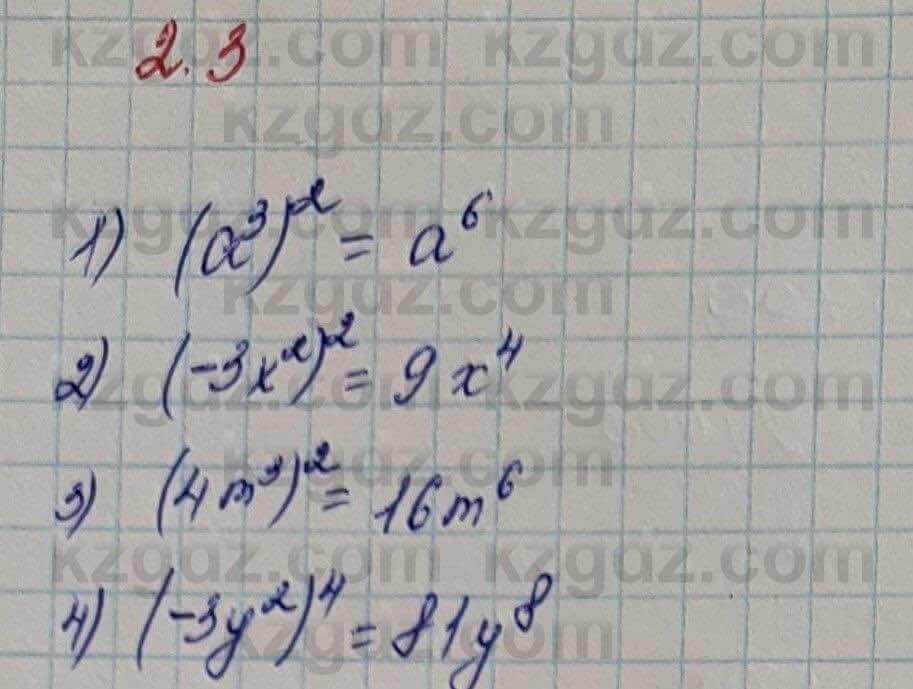 2.3
1) (a³)² = a⁶
2) (-3x²)² = 9x⁴
3) (4m³)² = 16m⁶
4) (-3y²)⁴ = 81y⁸
kzgdz.com kzgdz.com
kzgdz.com
kzgdz.com kzgdz.com
kzgdz.com
kzgdz.com kzgdz.com
kzgdz.com
kzgdz.com kzgdz.com
kzgdz.com